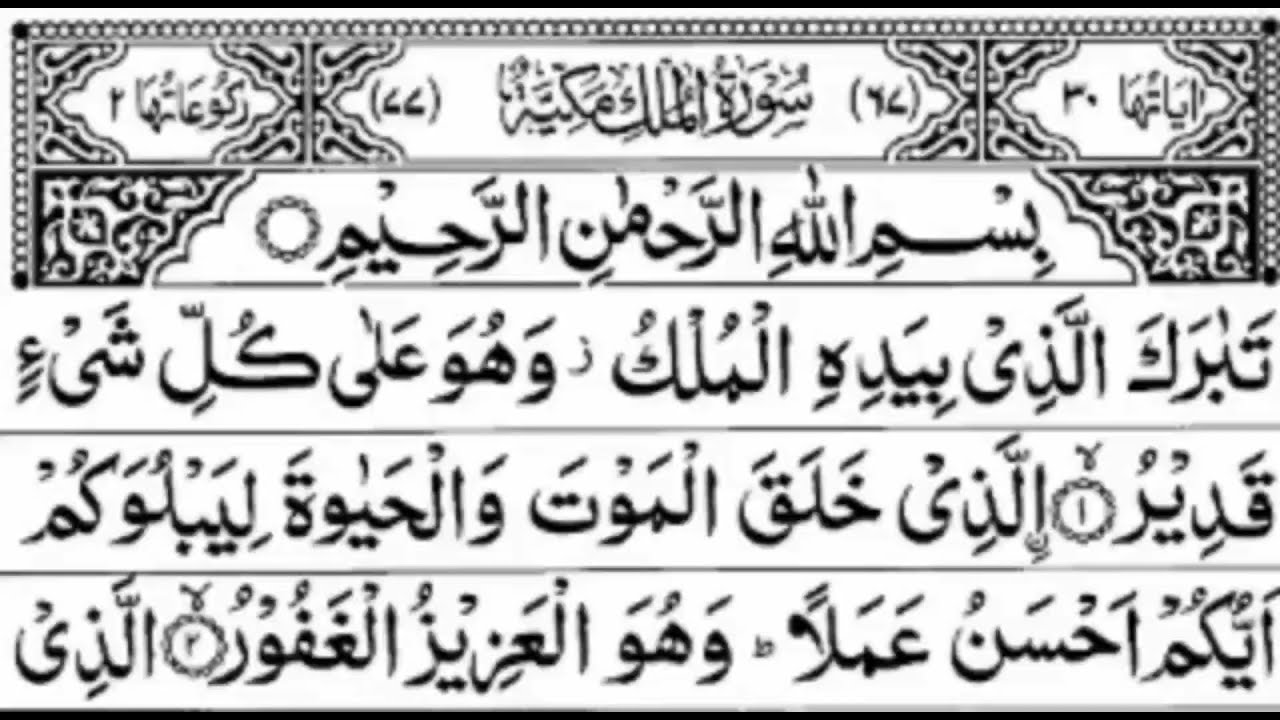 اٰيَاتُهَا ٣٠ (٦٧) سُوْرَةُ الْمُلْكِ مَكِّيَّةٌ (٧٧) رُكُوْعَاتُهَا ٢
بِسْمِ اللّٰهِ الرَّحْمٰنِ الرَّحِيْمِ
تَبٰرَكَ الَّذِىْ بِيَدِهِ الْمُلْكُ ز وَهُوَ عَلٰى كُلِّ شَىْءٍ
قَدِيْرُ ۙ‏ ١ اۨلَّذِىْ خَلَقَ الْمَوْتَ وَالْحَيٰوةَ لِيَبْلُوَكُمْ
اَيُّكُمْ اَحْسَنُ عَمَلًا ؕ وَهُوَ الْعَزِيْزُ الْغَفُوْرُ ۙ ٢ الَّذِىْ